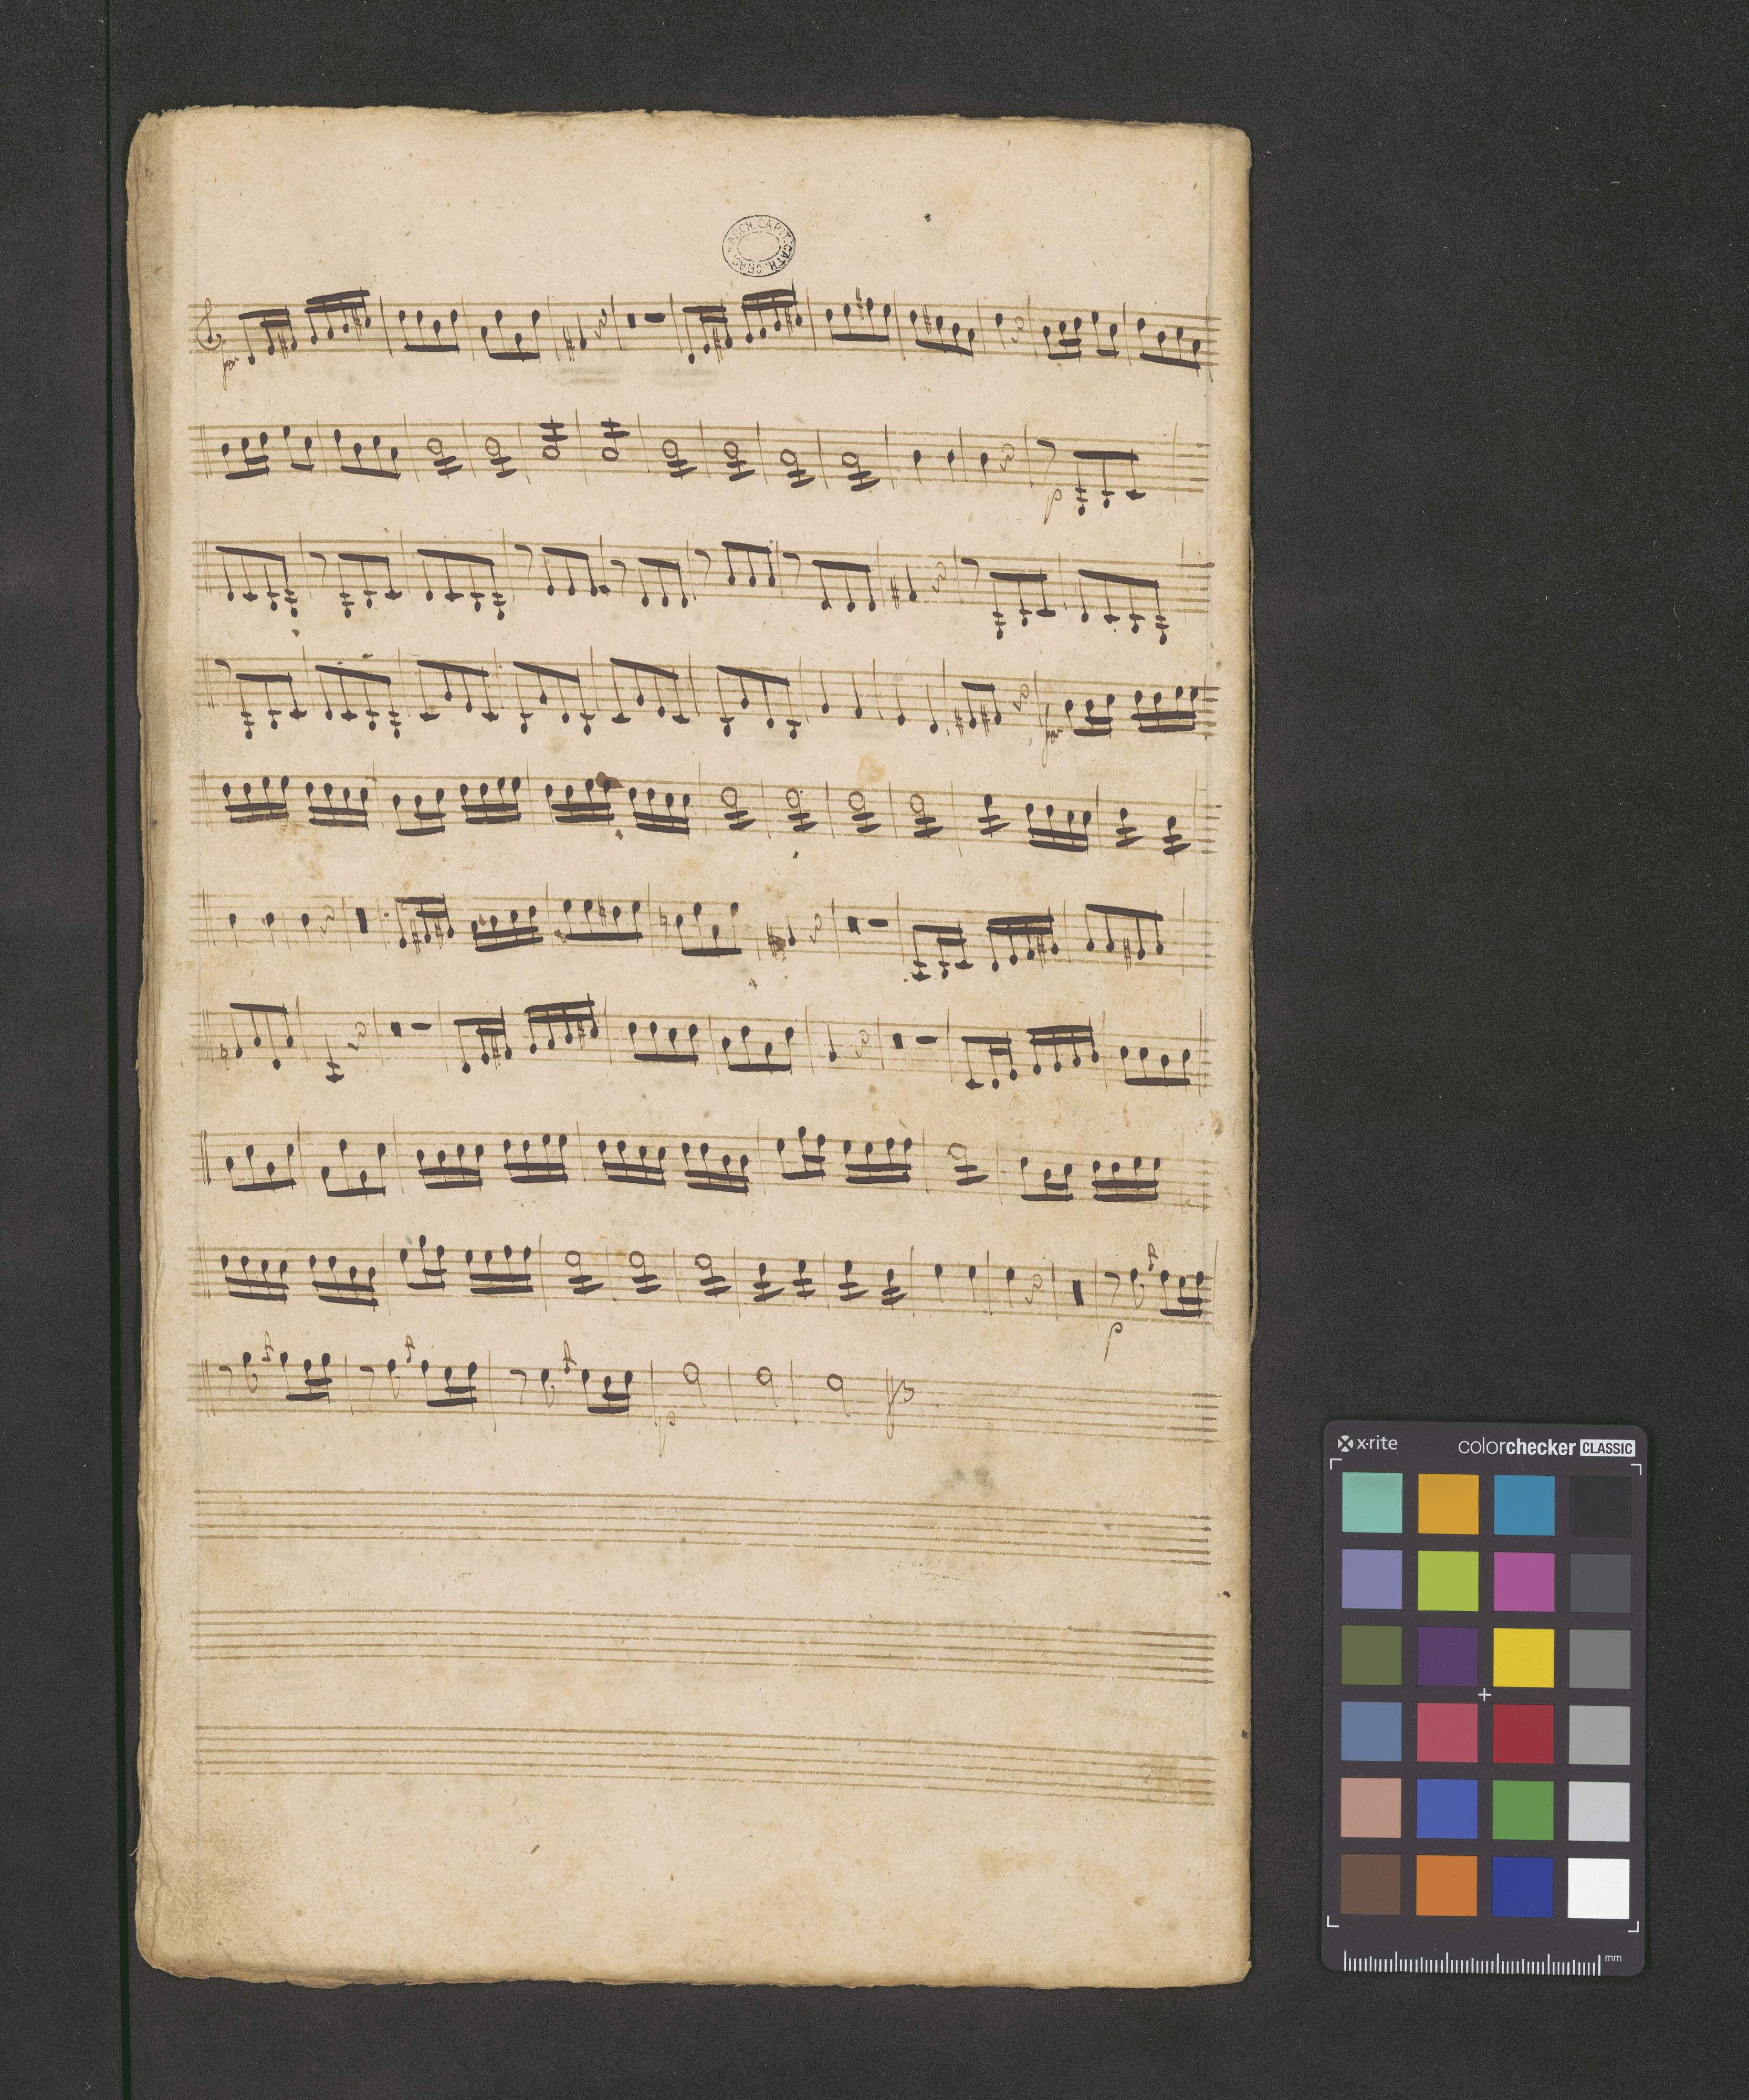 ARCH. CAPIT. CATH. CRAC.
for
p
for
p
p
x-rite
colorchecker CLASSIC
mm